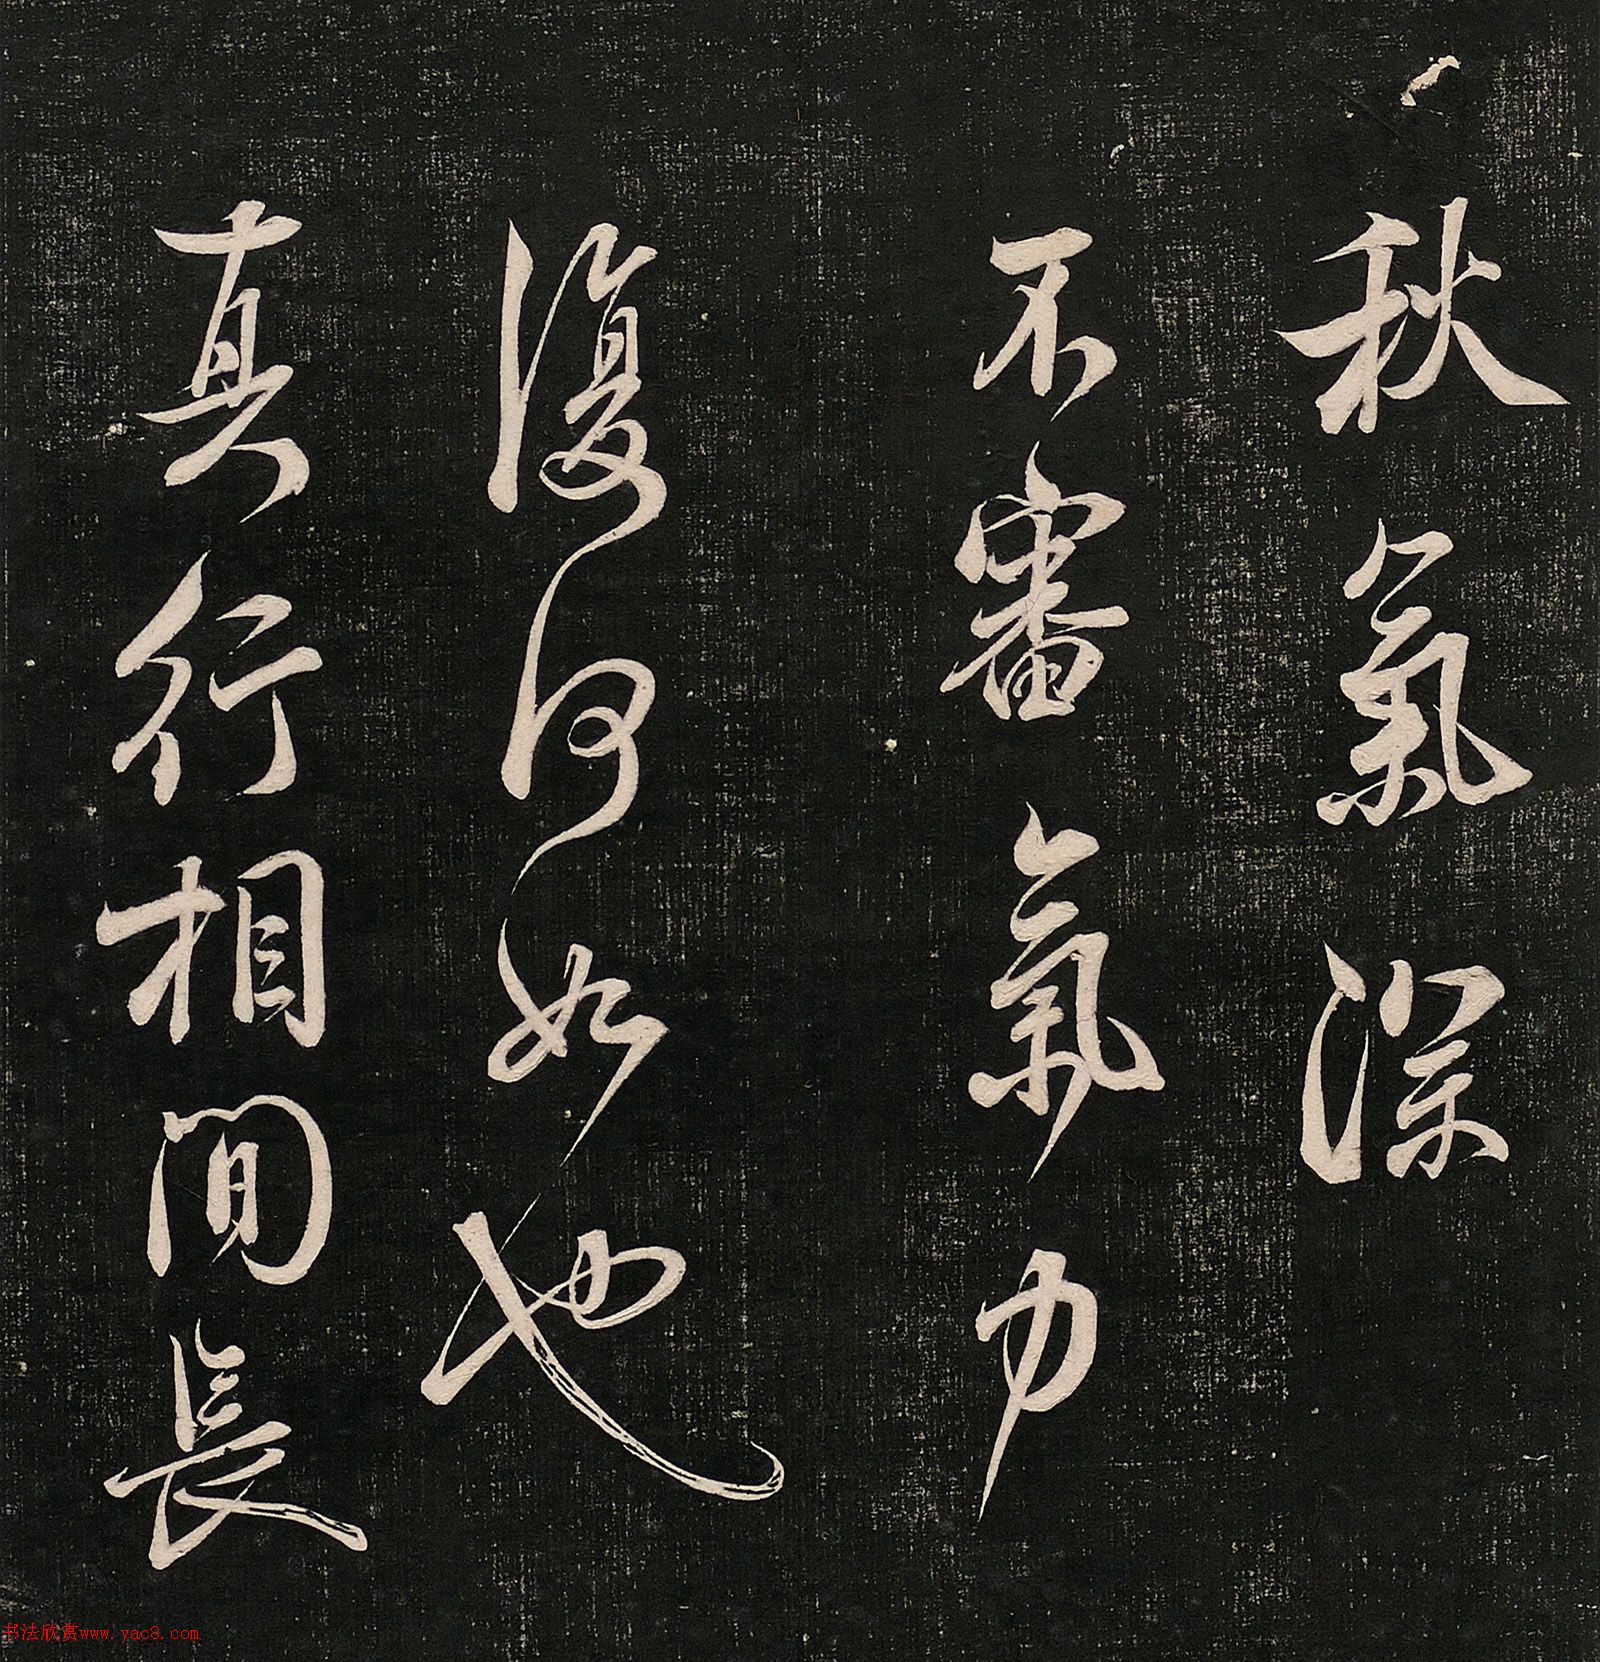 秋氣深
不審氣力
復何如也
真行相間長
书法欣赏www.yac8.com